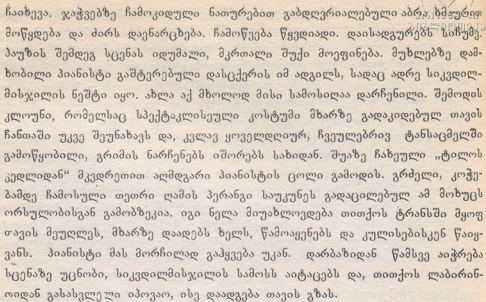 ჩაიხევა. ჯაჭვებზე ჩამოკიდული ნათურებით გაბდღვრიალებული აბრა ხმაურით
მოწყდება და ძირს დაენარცხება. ჩამოწვება წყვდიადი. დაისადგურებს სიჩუმე.
პაუზის შემდეგ სცენას იდუმალი, მკრთალი შუქი მოეფინება. მუხლებზე დამ-
ხობილი პიანისტი გაშტერებული დასცქერის იმ ადგილს, სადაც ადრე სიკვდილ-
მისჯილის ნეშტი იყო. ახლა აქ მხოლოდ მისი სამოსიღაა დარჩენილი. შემოდის
კლოუნი, რომელსაც სპექტაკლისეული კოსტუმი მხარზე გადაკიდებულ თავის
ჩანთაში უკვე შეუნახავს და, კვლავ ყოველდღიურ, ჩვეულებრივ ტანსაცმელში
გამოწყობილი, გრიმის ნარჩენებს იშორებს სახიდან. შუაზე ჩახეული „ტილოს
კედლიდან“ მკვდრეთით აღმდგარი პიანისტის ცოლი გამოდის. გრძელი, კოჭე-
ბამდე ჩამოსული თეთრი ღამის პერანგი საუკუნეს გადაცილებულ ამ მოხუცს
ორსულობისგან გამობზეკია. იგი ნელა მიუახლოვდება თითქოს ტრანსში მყოფ
თავის მეუღლეს, მხარზე დაადებს ხელს, წამოაყენებს და კულისებისკენ წაიყ-
ვანს. პიანისტი მას მორჩილად გაჰყვება უკან. დარბაზიდან წამსვე აიჭრება
სცენაზე უცნობი, სიკვდილმისჯილის სამოსს აიტაცებს და, თითქოს ლაბირინ-
თიდან გასასვლელი იპოვაო, ისე დაადგება თავის გზას.